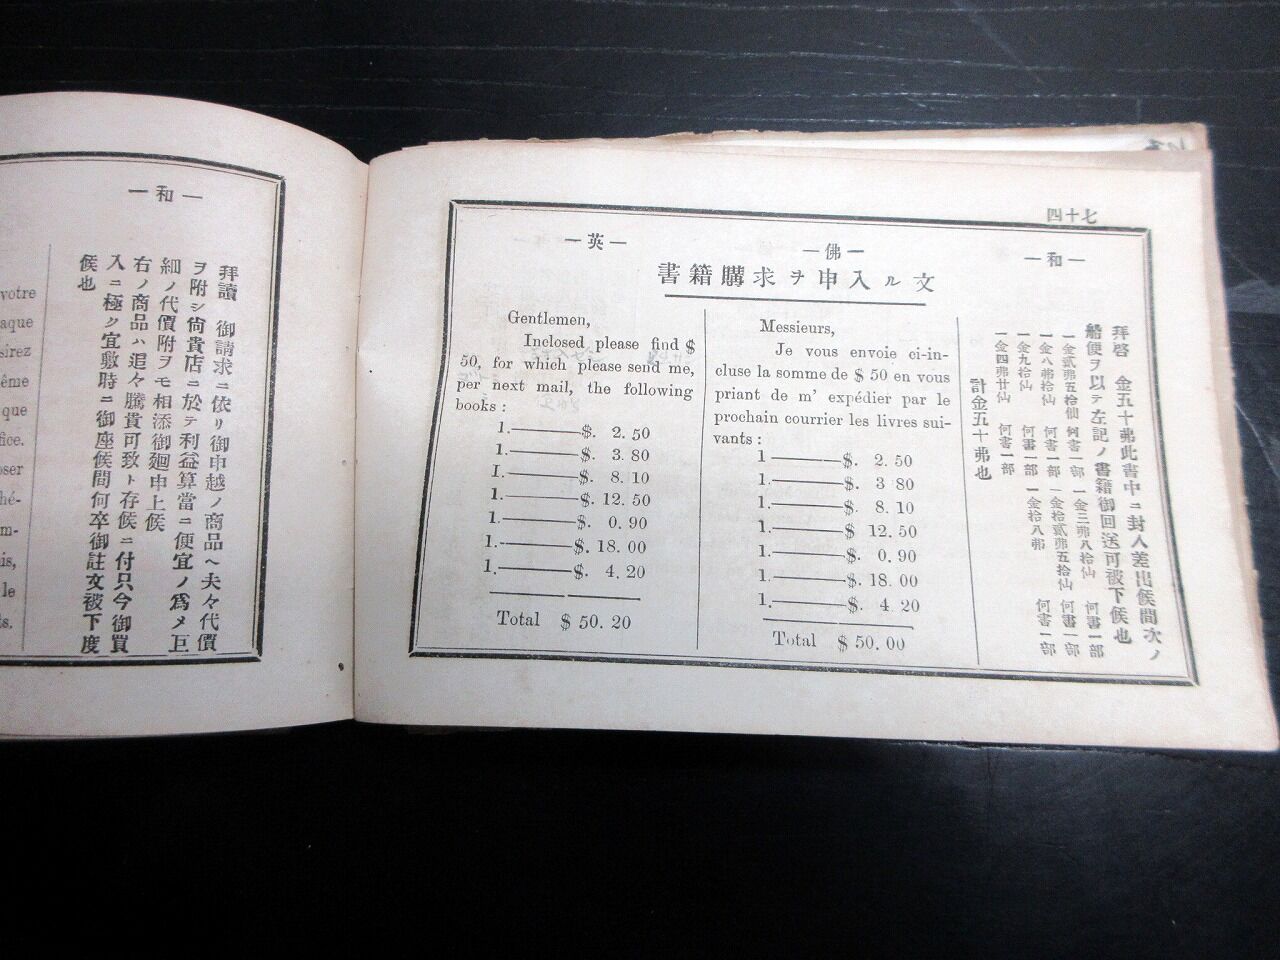 一和一
拜讀 御請求ニ依リ御申越ノ商品ヘ夫々代價
ヲ附シ尙貴店ニ於テ利益算當ニ便宜ノ爲メ巨
細ノ代價附ヲモ相添御廻申上候
右ノ商品ハ追々騰貴可致ト存候ニ付只今御買
入ニ極ク宜敷時ニ御座候間何卒御註文被下度
候也
votre
aque
sirez
ême
que
fice.
oser
hé-
m-
is,
le
ts.
四十七
一英一
一佛一
一和一
書籍購求ヲ申入ル文
Gentlemen,
Inclosed please find $
50, for which please send me,
per next mail, the following
books :
1.————$. 2.50
1.————$. 3.80
1.————$. 8.10
1.————$. 12.50
1.————$. 0.90
1.————$. 18.00
1.————$. 4.20
Total $ 50.20
Messieurs,
Je vous envoie ci-in-
cluse la somme de $ 50 en vous
priant de m' expédier par le
prochain courrier les livres sui-
vants :
1 ————$. 2.50
1.————$. 3 80
1.————$. 8.10
1.————$ 12.50
1.————$. 0.90
1.————$. 18.00
1.————$. 4.20
Total $ 50.00
拜啓 金五十弗此書中ニ封入差出候間次ノ
船便ヲ以テ左記ノ書籍御回送可被下候也
一金貳弗五拾仙 何書一部 一金三弗八拾仙 何書一部
一金八弗拾仙 何書一部 一金拾貳弗五拾仙 何書一部
一金九拾仙 何書一部 一金拾八弗 何書一部
一金四弗廿仙 何書一部
計金五十弗也